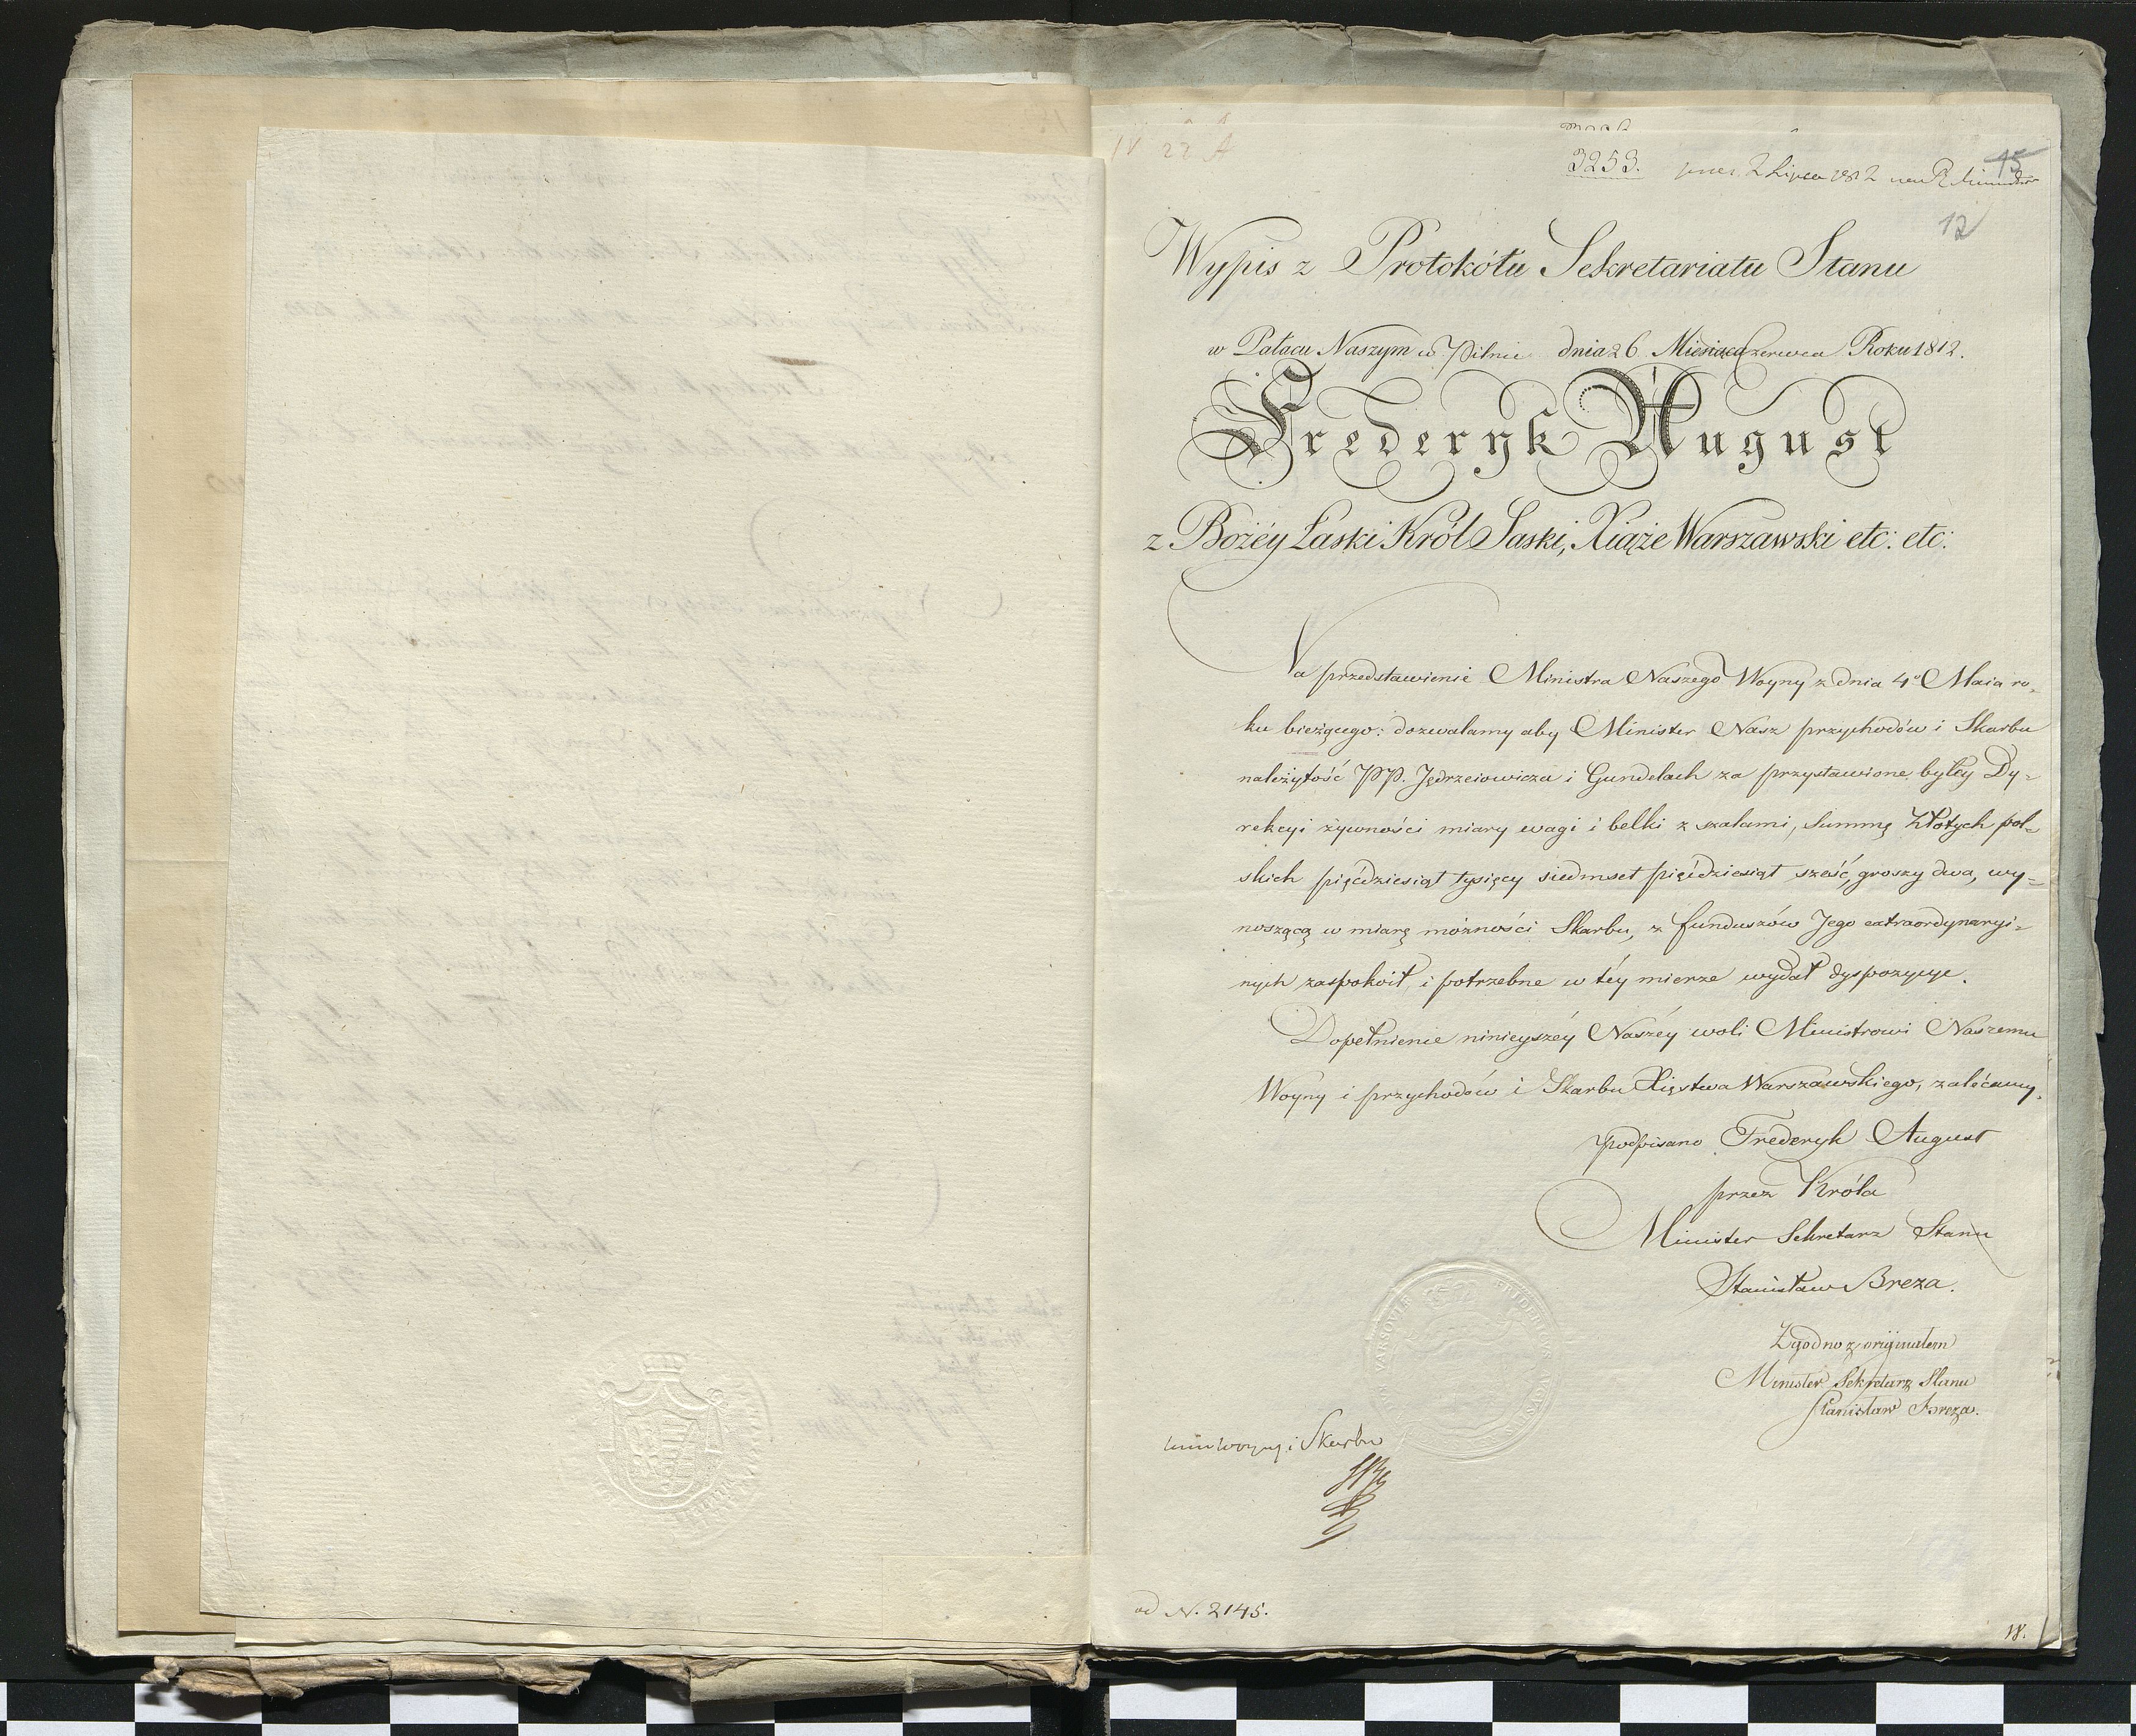 IV 22 A
3253. 2 Lipca 1812
15
12
Wypis z Protokółu Sekretariatu Stanu
w Pałacu Naszym w Pilnie dnia 26 Miesiąca Czerwca Roku 1812.
Frederyk August
z Bożéy Łaski Król Saski, Xiąże Warszawski etc: etc:
Na przedstawienie Ministra Naszego Woyny z dnia 4º Maia ro-
ku bieżącego: dozwalamy aby Minister Nasz przychodów i Skarbu
należytość PP. Jędrzeiowicza i Gundelach za przystawione byłey Dy-
rekcyi żywności miary wagi i belki z szalami, summę Złotych pol-
skich pięćdziesiąt tysięcy siedmset pięćdziesiąt sześć, groszy dwa, wy-
noszącą w miarę możności Skarbu, z funduszów Jego extraordynaryi-
nych zaspokoił, i potrzebne w téy mierze wydał dyspozycye.
Dopełnienie ninieyszéy Naszéy woli Ministrowi Naszemu
Woyny i przychodów i Skarbu Xięstwa Warszawskiego, zalécamy.
podpisano Frederyk August
przez Króla
Minister Sekretarz Stanu
Stanisław Breza.
Zgodno z oryginałem
Minister Sekretarz Stanu
Stanisław Breza.
Woyny i Skarbu
od N. 2145.
18.